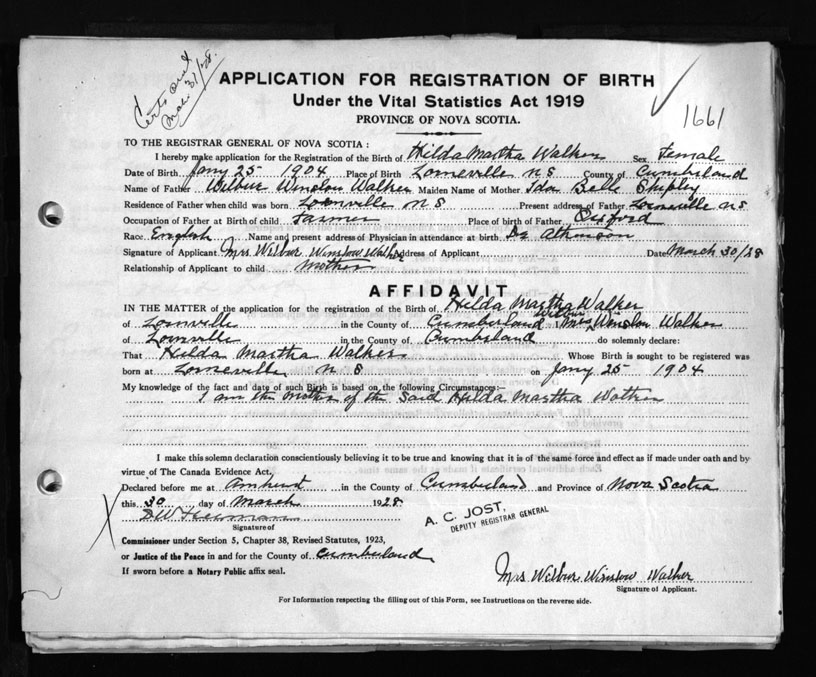 Certs and
Mar. 31/28.
APPLICATION FOR REGISTRATION OF BIRTH
Under the Vital Statistics Act 1919
PROVINCE OF NOVA SCOTIA.
1661
TO THE REGISTRAR GENERAL OF NOVA SCOTIA :
I hereby make application for the Registration of the Birth of Hilda Martha Walker Sex Female
Date of Birth Jany 25 1904 Place of Birth Lorneville N S County of Cumberland
Name of Father Wilbur Winslow Walker Maiden Name of Mother Ida Belle Shipley
Residence of Father when child was born Lornville N S Present address of Father Lorneville N S
Occupation of Father at Birth of child Farmer Place of birth of Father Oxford
Race English Name and present address of Physician in attendance at birth Dr Atkinson
Signature of Applicant Mrs Wilbur Winslow Walker Address of Applicant Date March 30/28
Relationship of Applicant to child Mother
AFFIDAVIT
IN THE MATTER of the application for the registration of the Birth of Hilda Martha Walker
of Lornville in the County of Cumberland I Mrs Wilbur Winslow Walker
of Lornville in the County of Cumberland do solemnly declare:
That Hilda Martha Walker Whose Birth is sought to be registered was
born at Lorneville N S on Jany 25 1904
My knowledge of the fact and date of such Birth is based on the following Circumstances:–
I am the Mother of the Said Hilda Martha Walker
I make this solemn declaration conscientiously believing it to be true and knowing that it is of the same force and effect as if made under oath and by
virtue of The Canada Evidence Act.
Declared before me at Amherst in the County of Cumberland and Province of Nova Scotia
this 30 day of March 1928
Signature of
A. C. JOST,
DEPUTY REGISTRAR GENERAL
Commissioner under Section 5, Chapter 38, Revised Statutes, 1923,
or Justice of the Peace in and for the County of Cumberland
If sworn before a Notary Public affix seal.
Mrs Wilbur Winslow Walker
Signature of Applicant.
For Information respecting the filling out of this Form, see Instructions on the reverse side.